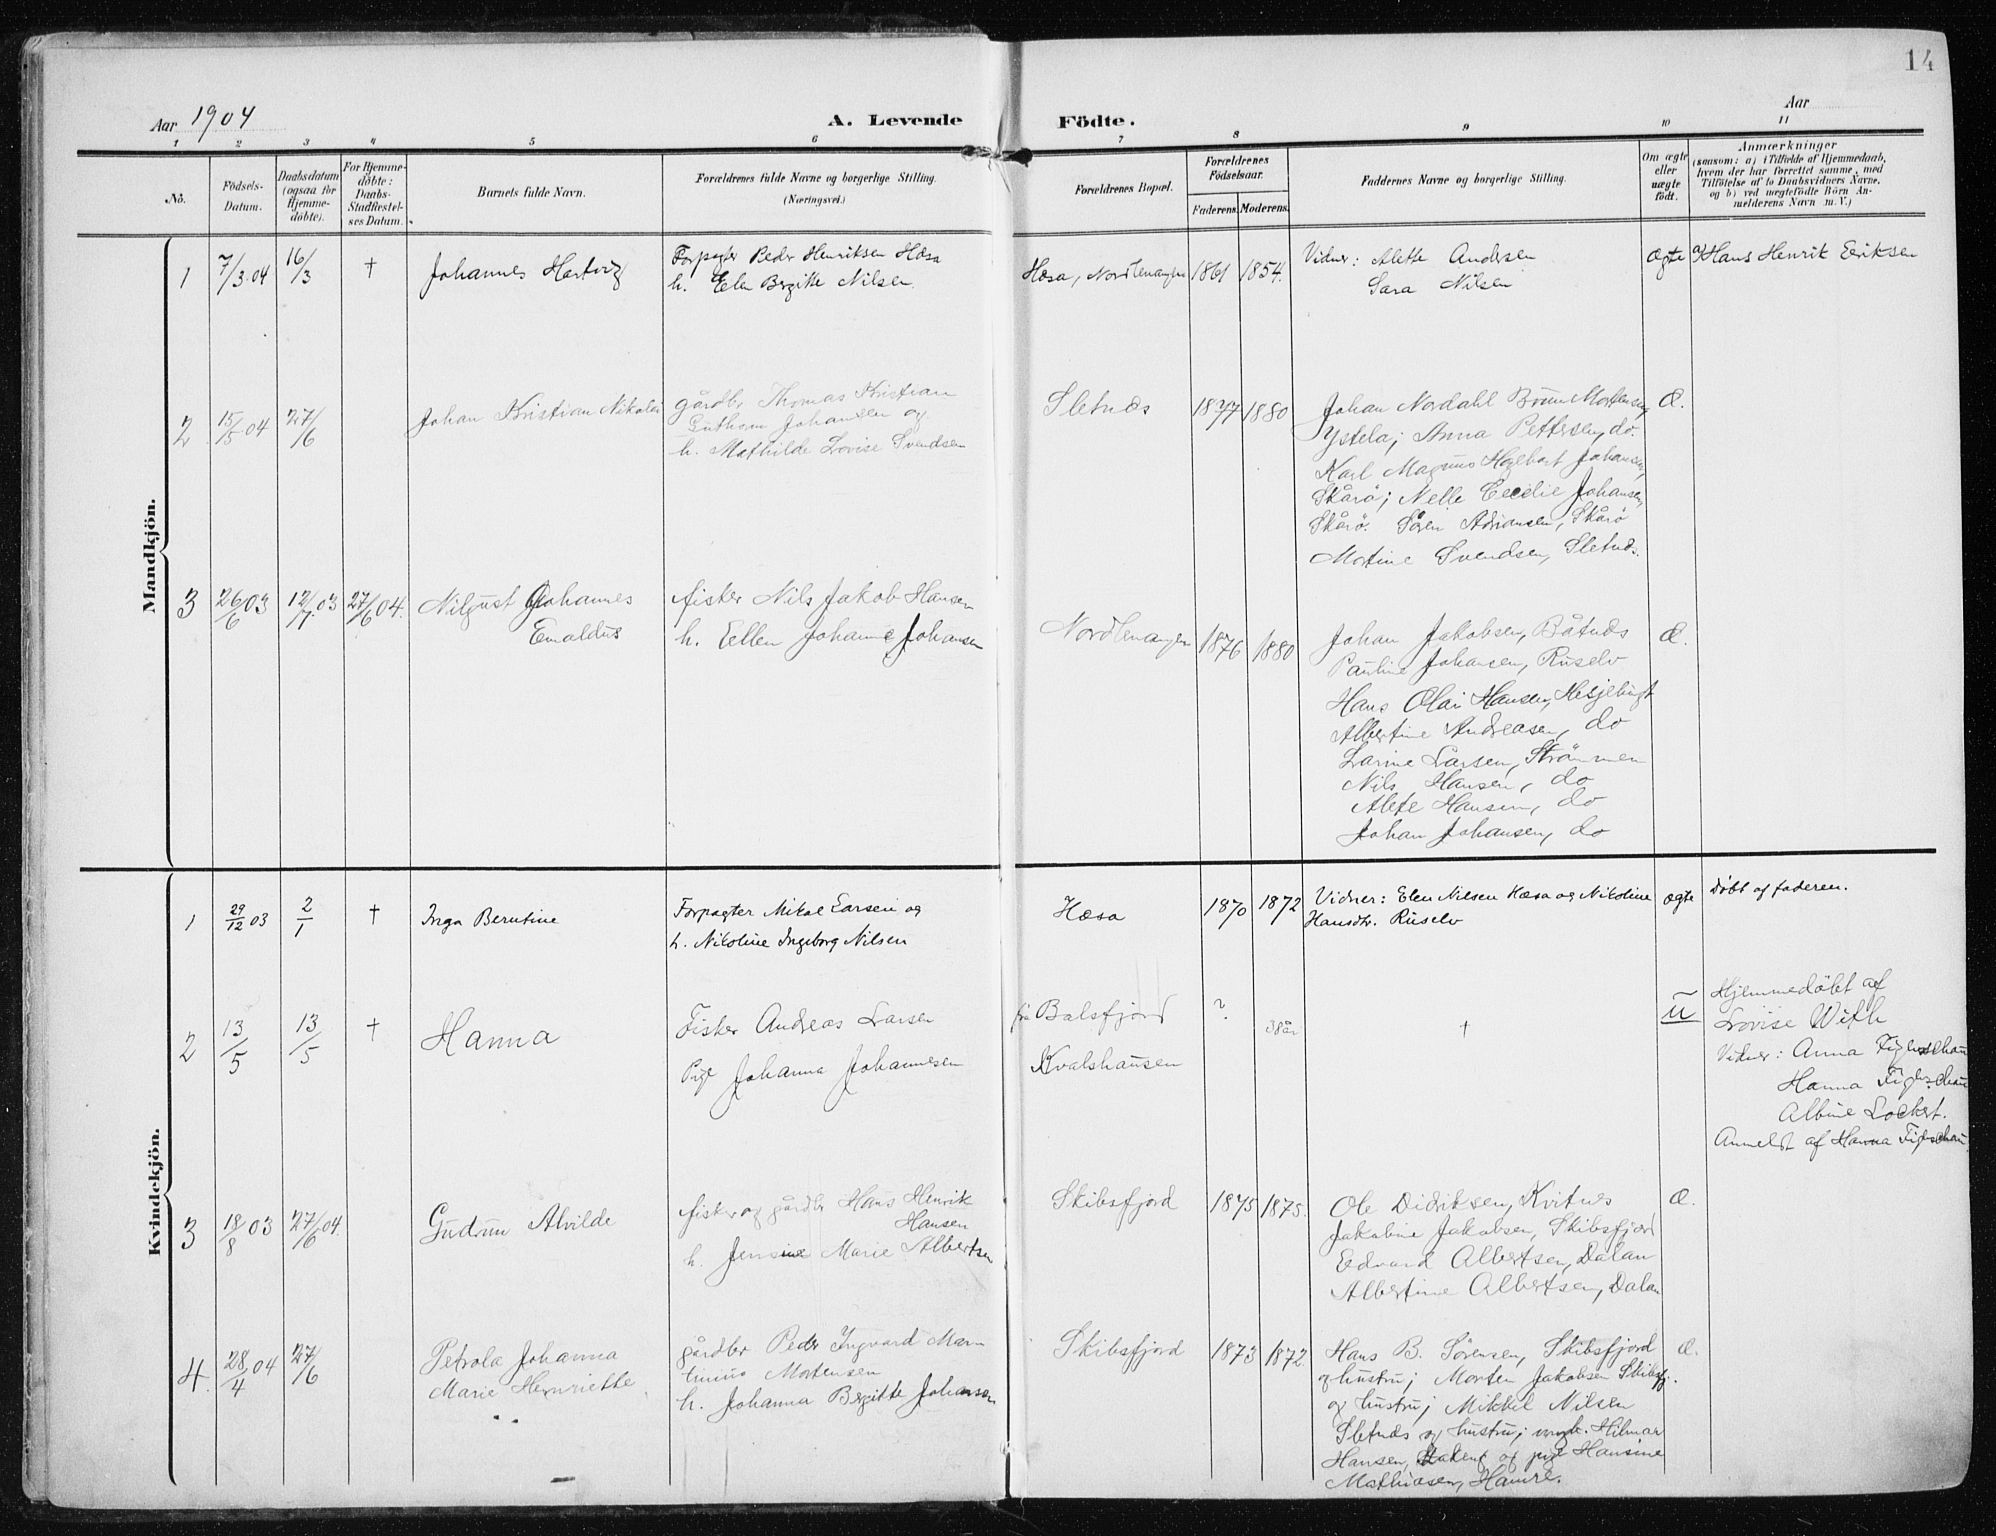 14
Aar 1904
A. Levende Födte.
Aar
1 2 3 4 5 6 7 8 9 10 11
No.
Födsels-
Datum.
Daabsdatum
(ogsaa for
Hjemme-
döbte).
For Hjemme-
döbte:
Daabs-
Stadfæstel-
ses Datum.
Barnets fulde Navn.
Forældrenes fulde Navne og borgerlige Stilling.
(Næringsvei.)
Forældrenes Bopæl.
Forældrenes
Födselsaar.
Faderens. Moderens.
Faddernes Navne og borgerlige Stilling.
Om ægte
eller
uægte
født.
Anmærkninger
(saasom: a) i Tilfælde af Hjemmedaab,
hvem der har forrettet samme, med
Tilföielse af to Daabsvidners Navne,
og b) ved uægtefödte Börn An-
melderens Navn m. V.)
Mandkjön.
1 7/3 04 16/3 † Johannes Hartvig
Forpagter Peder Henriksen Hæsa
h. Elen Bergitte Nilsen.
Hæsa, Nordlenangen 1861 1854.
Vidner: Alette Andersen
Sara Nilsen
ægte
a) Hans Henrik Eriksen
2 15/5 04 27/6 Johan Kristian Nikolai
gårdbr Thomas Kristian
Guthorm Johansen og
h. Mathilde Lovise Svendsen
Sletnæs 1877 1880
Johan Nordahl Mortensen,
Ystela; Anna Pettersen, do.
Karl Magnus Johansen,
Skårö; Nelle Cecilie Johansen,
Skårö. Sören Adriansen, Skårö
Mortine Svendsen, Sletnæs.
Æ.
3 26/6 03 12/7 03 27/6 04. Nilgust Johannes
Emaldus
fisker Nils Jakob Hansen
h. Ellen Johanne Johansen
Nordlenangen 1876 1880
Johan Jakobsen, Båtnæs
Pauline Johansen, Ruselv
Hans Olai Hansen, Hesjebugt
Albertine Andreasen, do
Larine Larsen, Strömmen
Nils Hansen, do
Alete Hansen, do
Johan Johansen, do
Æ.
Kvindekjön.
1 29/12 03 2/1 † Inga Berntine
Forpagter Mikal Larsen og
h. Nikoline Ingeborg Nilsen
Hæsa 1870 1872
Vidner: Elen Nilsen Hæsa og Nikoline
Hansdtr. Ruselv
ægte
Døbt af faderen.
2 13/5 13/5 † Hanna
Fisker Andreas Larsen
Pige Johanna Johannesen
fra Balsfjord
Kvalshausen
? 38 år
†
u
Hjemmedöbt af
Lovise With
Vidner: Anna Figenschau
Hanna Figenschau
Albine Lockert.
Anmeldt af Hanna Figenschau
3 18/8 03 27/6 04. Gudrun Alvilde
fisker og gårdbr Hans Henrik
Hansen
h. Jensine Marie Albertsen
Skibsfjord 1875 1875.
Ole Didriksen, Kvitnes
Jakobine Jakobsen, Skibsfjord
Edvard Albertsen, Dalan
Albertine Albertsen, Dalan
Æ.
4. 28/4 04 27/6 Petrola Johanna
Marie Henriette
gårdbr Peder Ingvard Marin
tinius Mortensen
h. Johanna Bergitte Johansen
Skibsfjord 1873 1872.
Hans B. Sörensen, Skibsfjord
og hustru; Morten Jakobsen Skibsfj.
og hustru; Mikkel Nilsen
Sletnæs og hustru; ungk. Hilmar
Hansen, og pige Hansine
Mathiasen, Hamre.
Æ.